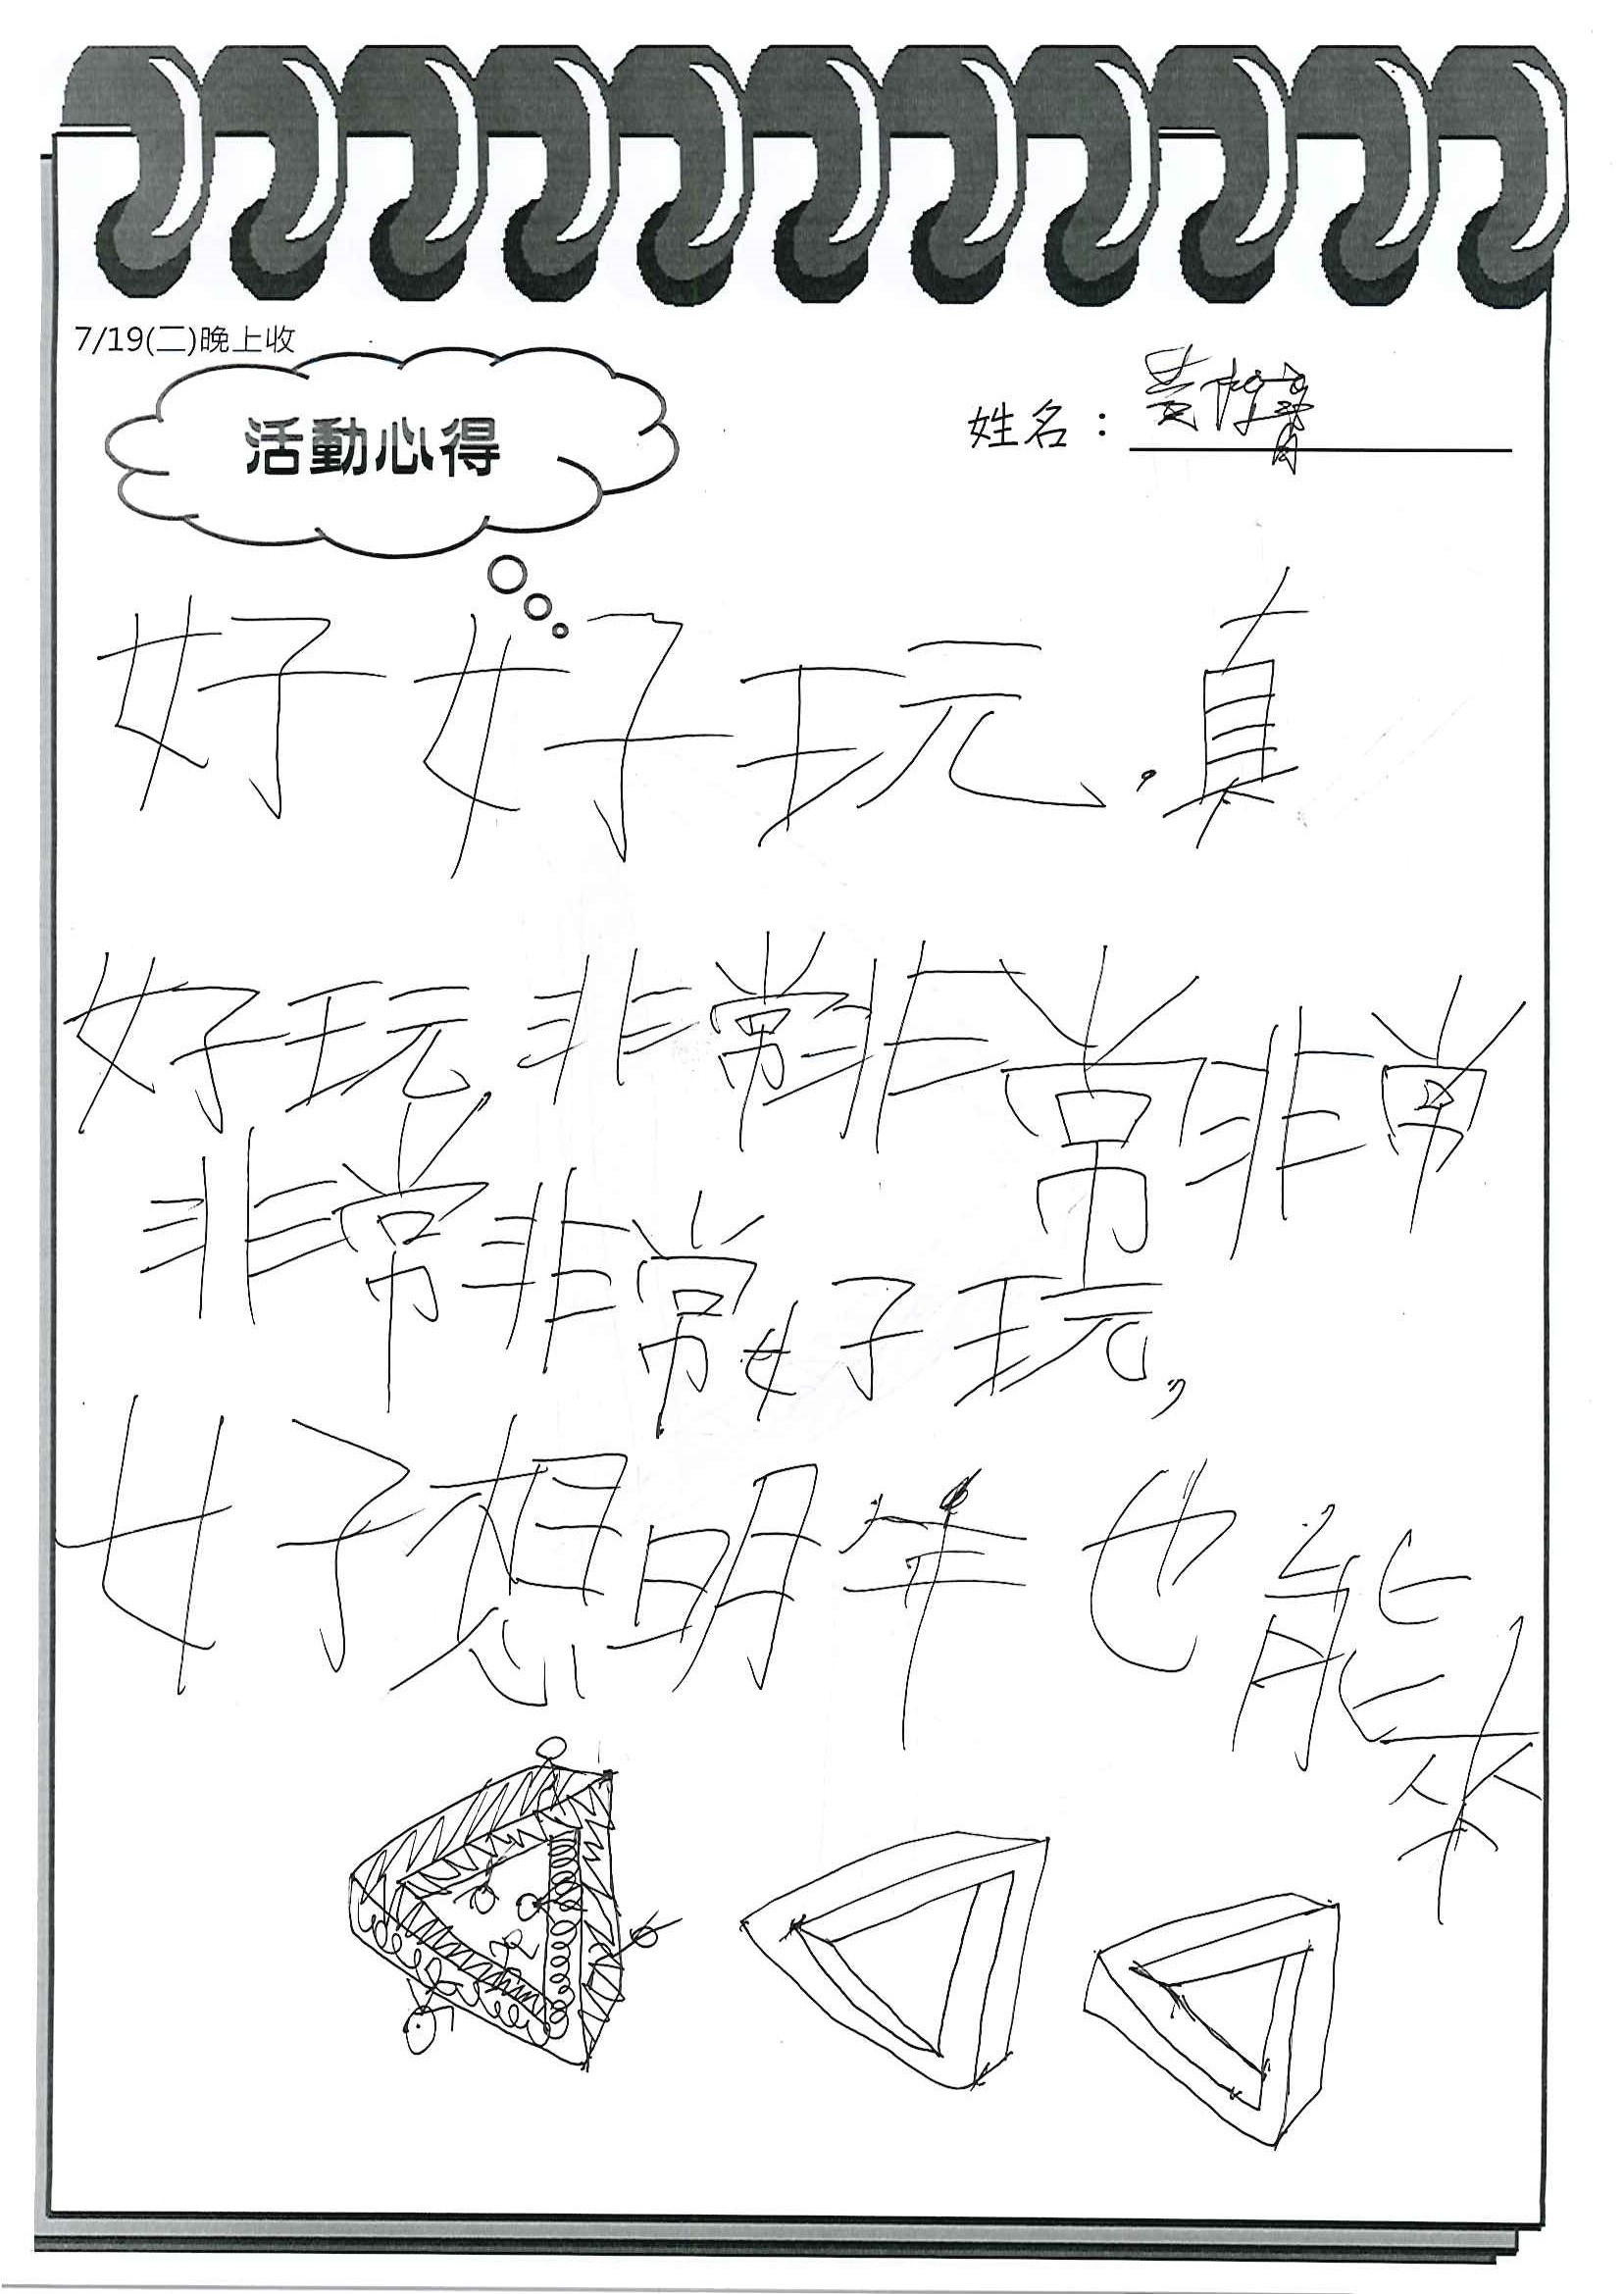 7/19(二)晚上收
活動心得
姓名：
好好玩，真
好玩，非常非常非常
非常非常好玩，
好想明年也能來